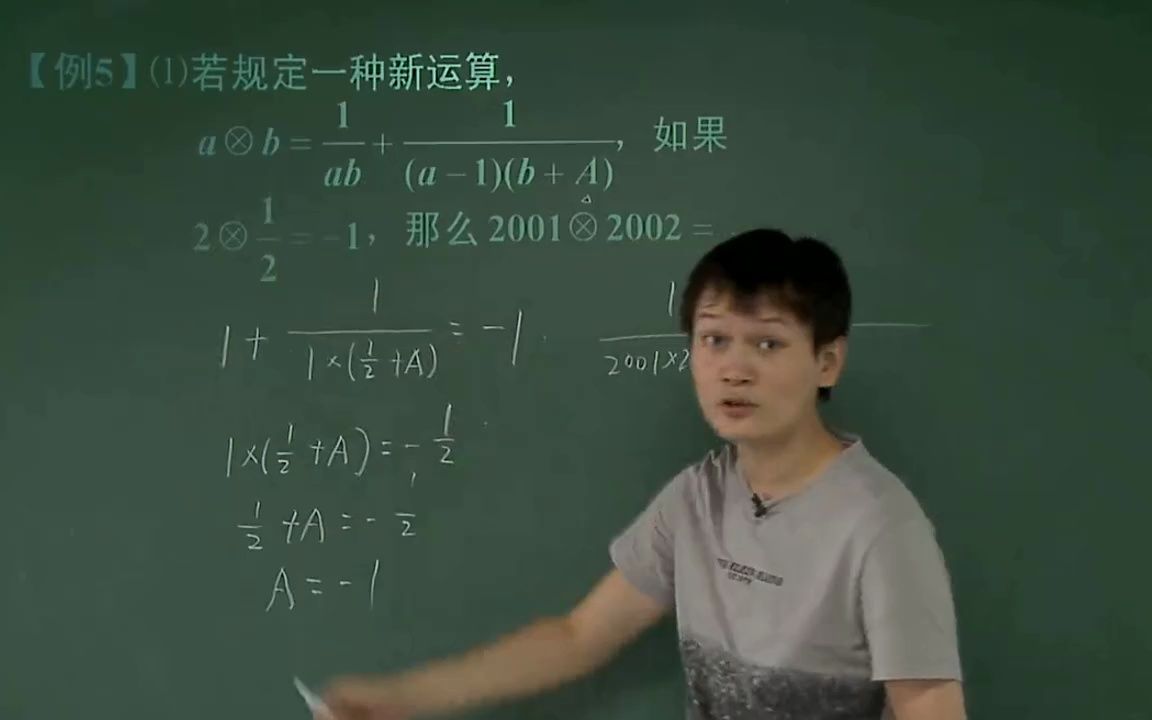 【例5】(1)若规定一种新运算,
a⊗b=1/ab+1/((a-1)(b+A)), 如果
2⊗1/2=-1, 那么2001⊗2002=
1+1/(1×(1/2+A))=-1
1×(1/2+A)=-1/2
1/2+A=-1/2
A=-1
1/2001×2